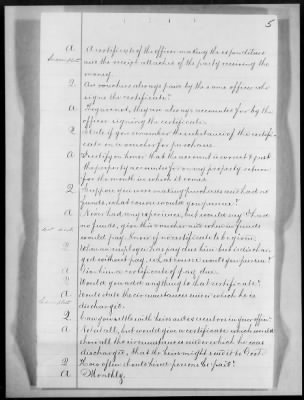 5
A. A certificate of the officer making the expenditure
and the receipt attached of the party receiving the
money.
Q. Are vouchers always paid by the same officer who
signs the certificate?
A. If they are not, they are always accounted for by the
officer signing the certificate.
Q. State if you remember the substance of the certifi-
cate on a voucher for purchase.
A. I certify on honor that the account is correct & just
the property accounted for on my property return
for the month in which it comes.
Q. Suppose you were making purchases and had no
funds, what course would you pursue?
A. Never had any experience, but would say I had
no funds, give this voucher and when in funds
would pay. Know of no certificate to be given.
Q. When an employee has pay due him but is dischar-
ged without pay, what course would you pursue?
A. Give him a certificate of pay due.
Q. Would you add anything to that certificate?
A. Would state the circumstances under which he is
discharged.
Q. Can you settle with heirs and executors in your office?
A. Not at all, but would give a certificate which would
show all the circumstances under which he was
discharged, that the heirs might send it to
Q. How often should hired persons be paid?
A. Monthly.